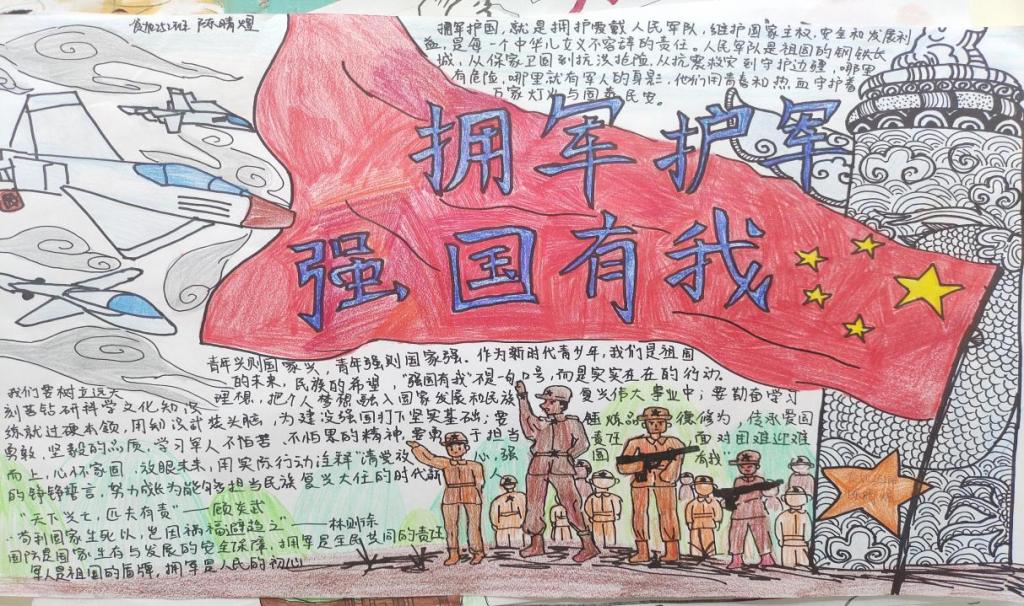 陈晴煜
拥军护国，就是拥护爱戴人民军队，维护国家主权，安全和发展利
益，是每一个中华儿女义不容辞的责任。人民军队是祖国的钢铁长
城，从保家卫国到抗洪抢险，从抗震救灾到守护边疆，哪里
有危险，哪里就有军人的身影，他们用青春和热血守护着
万家灯火与国泰民安。
拥军护军
强国有我
青年兴则国家兴，青年强则国家强。作为新时代青少年，我们是祖国
的未来，民族的希望，“强国有我”不是一句口号，而是实实在在的行动。
我们要树立远大理想，把个人梦想融入国家发展和民族复兴伟大事业中；要勤奋学习
刻苦钻研科学文化知识，用知识武装头脑，为建设强国打下坚实基础；要锤炼品德修为，传承爱国
练就过硬本领，
勇敢，坚毅的品质，学习军人不怕苦，不怕累的精神，要勇于担当责任，面对困难迎难
而上，心怀家国，放眼未来，用实际行动诠释“清爱放心，强国有我”
的铮铮誓言，努力成为能够担当民族复兴大任的时代新人
“天下兴亡，匹夫有责”——顾炎武
“苟利国家生死以，岂因祸福避趋之”——林则徐
国防是国家生存与发展的安全保障，拥军是全民共同的责任
军人是祖国的盾牌，拥军是人民的初心